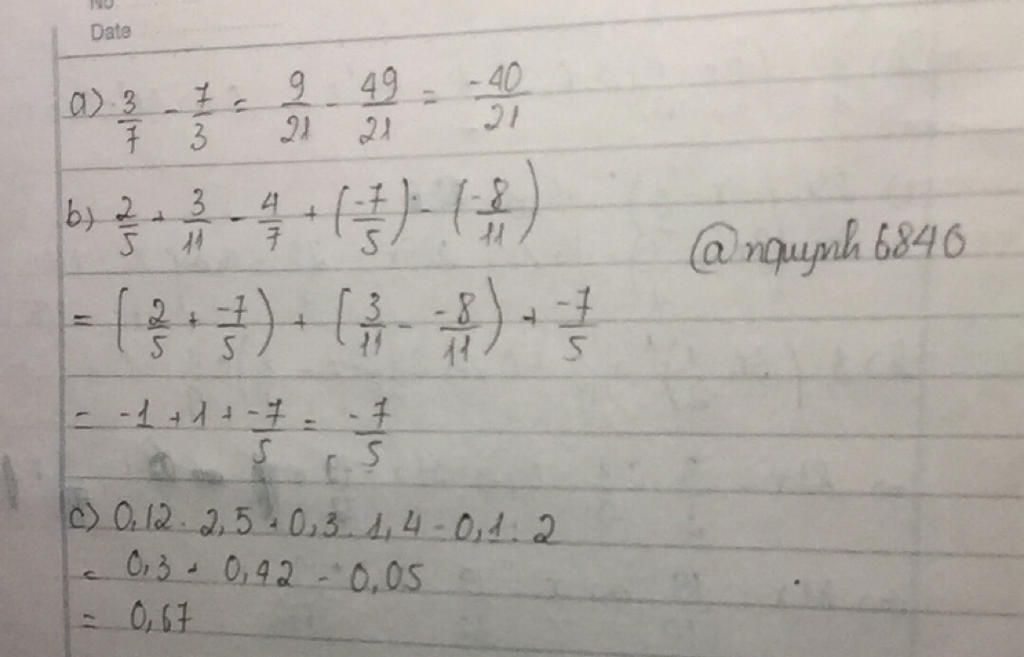 No
Date
a) 3/7 - 7/3 = 9/21 - 49/21 = -40/21
b) 2/5 + 3/11 - 4/7 + (-7/5) - (-8/11)
@nquynh6840
= (2/5 + -7/5) + (3/11 - -8/11) + -7/5
= -1 + 1 + -7/5 = -7/5
c) 0,12 . 2,5 + 0,3 . 1,4 - 0,1 : 2
= 0,3 + 0,42 - 0,05
= 0,67